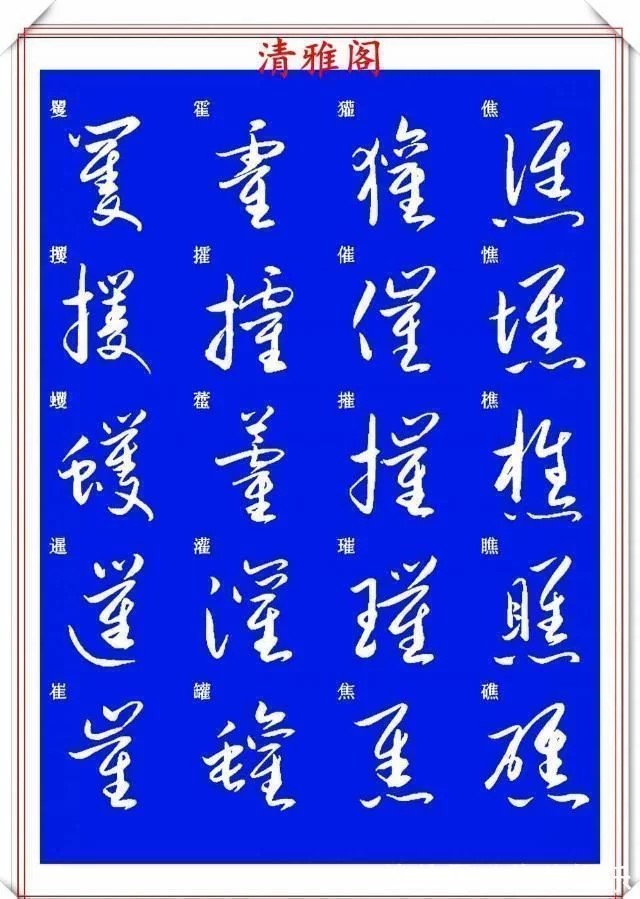 清雅阁
矍 霍 獾 僬
矍 霍 獾 僬
攫 攉 催 憔
攫 攉 催 憔
蠼 藿 摧 樵
蠼 藿 摧 樵
暹 灌 璀 瞧
暹 灌 璀 瞧
崔 罐 焦 礁
崔 罐 焦 礁